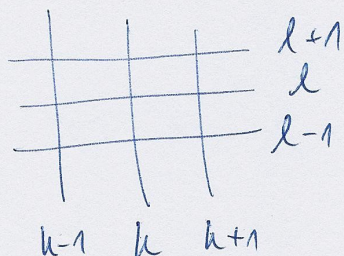 l+1
l
l-1
k-1 k k+1